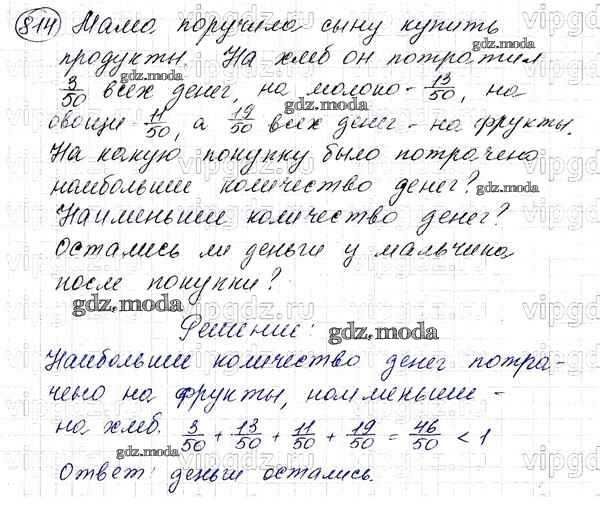 814 Мама поручила сыну купить
продукты. На хлеб он потратил
3/50 всех денег, на молоко - 13/50, на
овощи 11/50, а 19/50 всех денег - на фрукты.
На какую покупку было потрачено
наибольшее количество денег?
Наименьшее количество денег?
Остались ли деньги у мальчика
после покупки?
Решение:
Наибольшее количество денег потра-
чено на фрукты, наименьшее -
на хлеб. 3/50 + 13/50 + 11/50 + 19/50 = 46/50 < 1
Ответ: деньги остались.
gdz.moda
vipgdz.ru